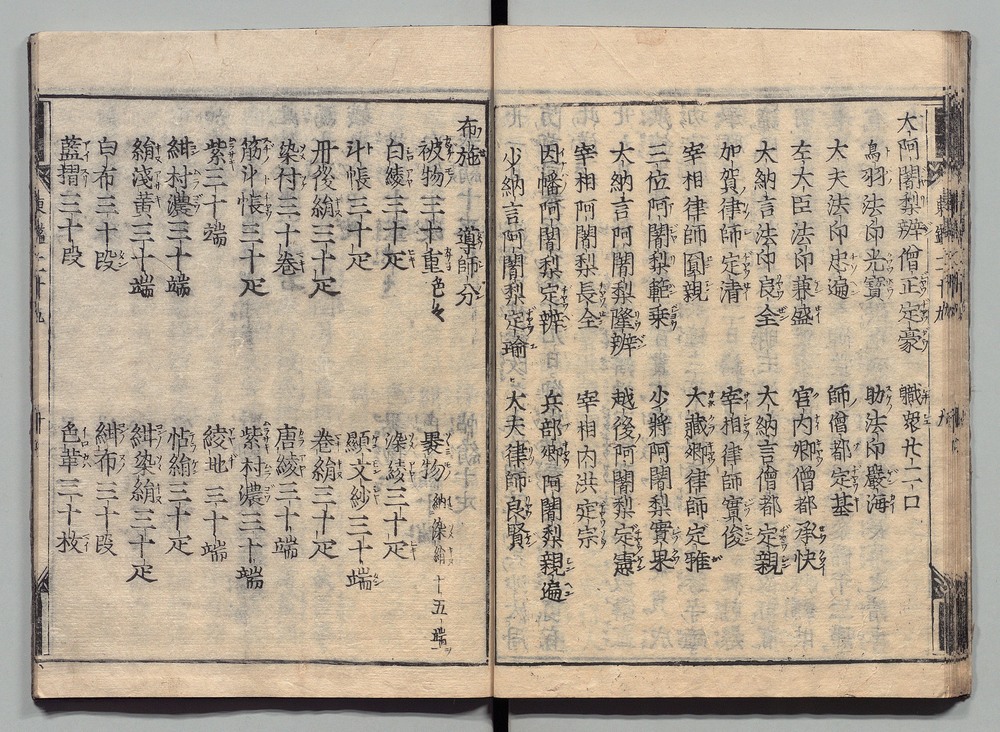 大阿闍梨辨僧正定豪 職衆廿二口
鳥羽法印光寶 助法印嚴海
大夫法印忠遍 師僧都定基
左大臣法印兼盛 宮内卿僧都承快
大納言法印良全 大納言僧都定親
加賀律師定清 宰相律師實俊
宰相律師圓親 大藏卿律師定雅
三位阿闍梨範乗 少將阿闍梨實果
大納言阿闍梨隆辨 越後阿闍梨定憲
宰相阿闍梨長全 宰相内洪定宗
因幡阿闍梨定辨 兵部卿阿闍梨親遍
少納言阿闍梨定瑜 大夫律師良賢
布施 導師分
被物三十重色々 裹物納染絹十五端
白綾三十疋 染綾三十疋
斗帳三十疋 顯文紗三十端
丹後絹三十疋 卷絹三十疋
染付三十卷 唐綾三十端
筋斗帳三十疋 紫村濃三十端
紫三十端 綾地三十端
紺村濃三十端 帖絹三十疋
絹淺黄三十端 紺染絹三十疋
白布三十段 紺布三十段
藍摺三十段 色革三十枚